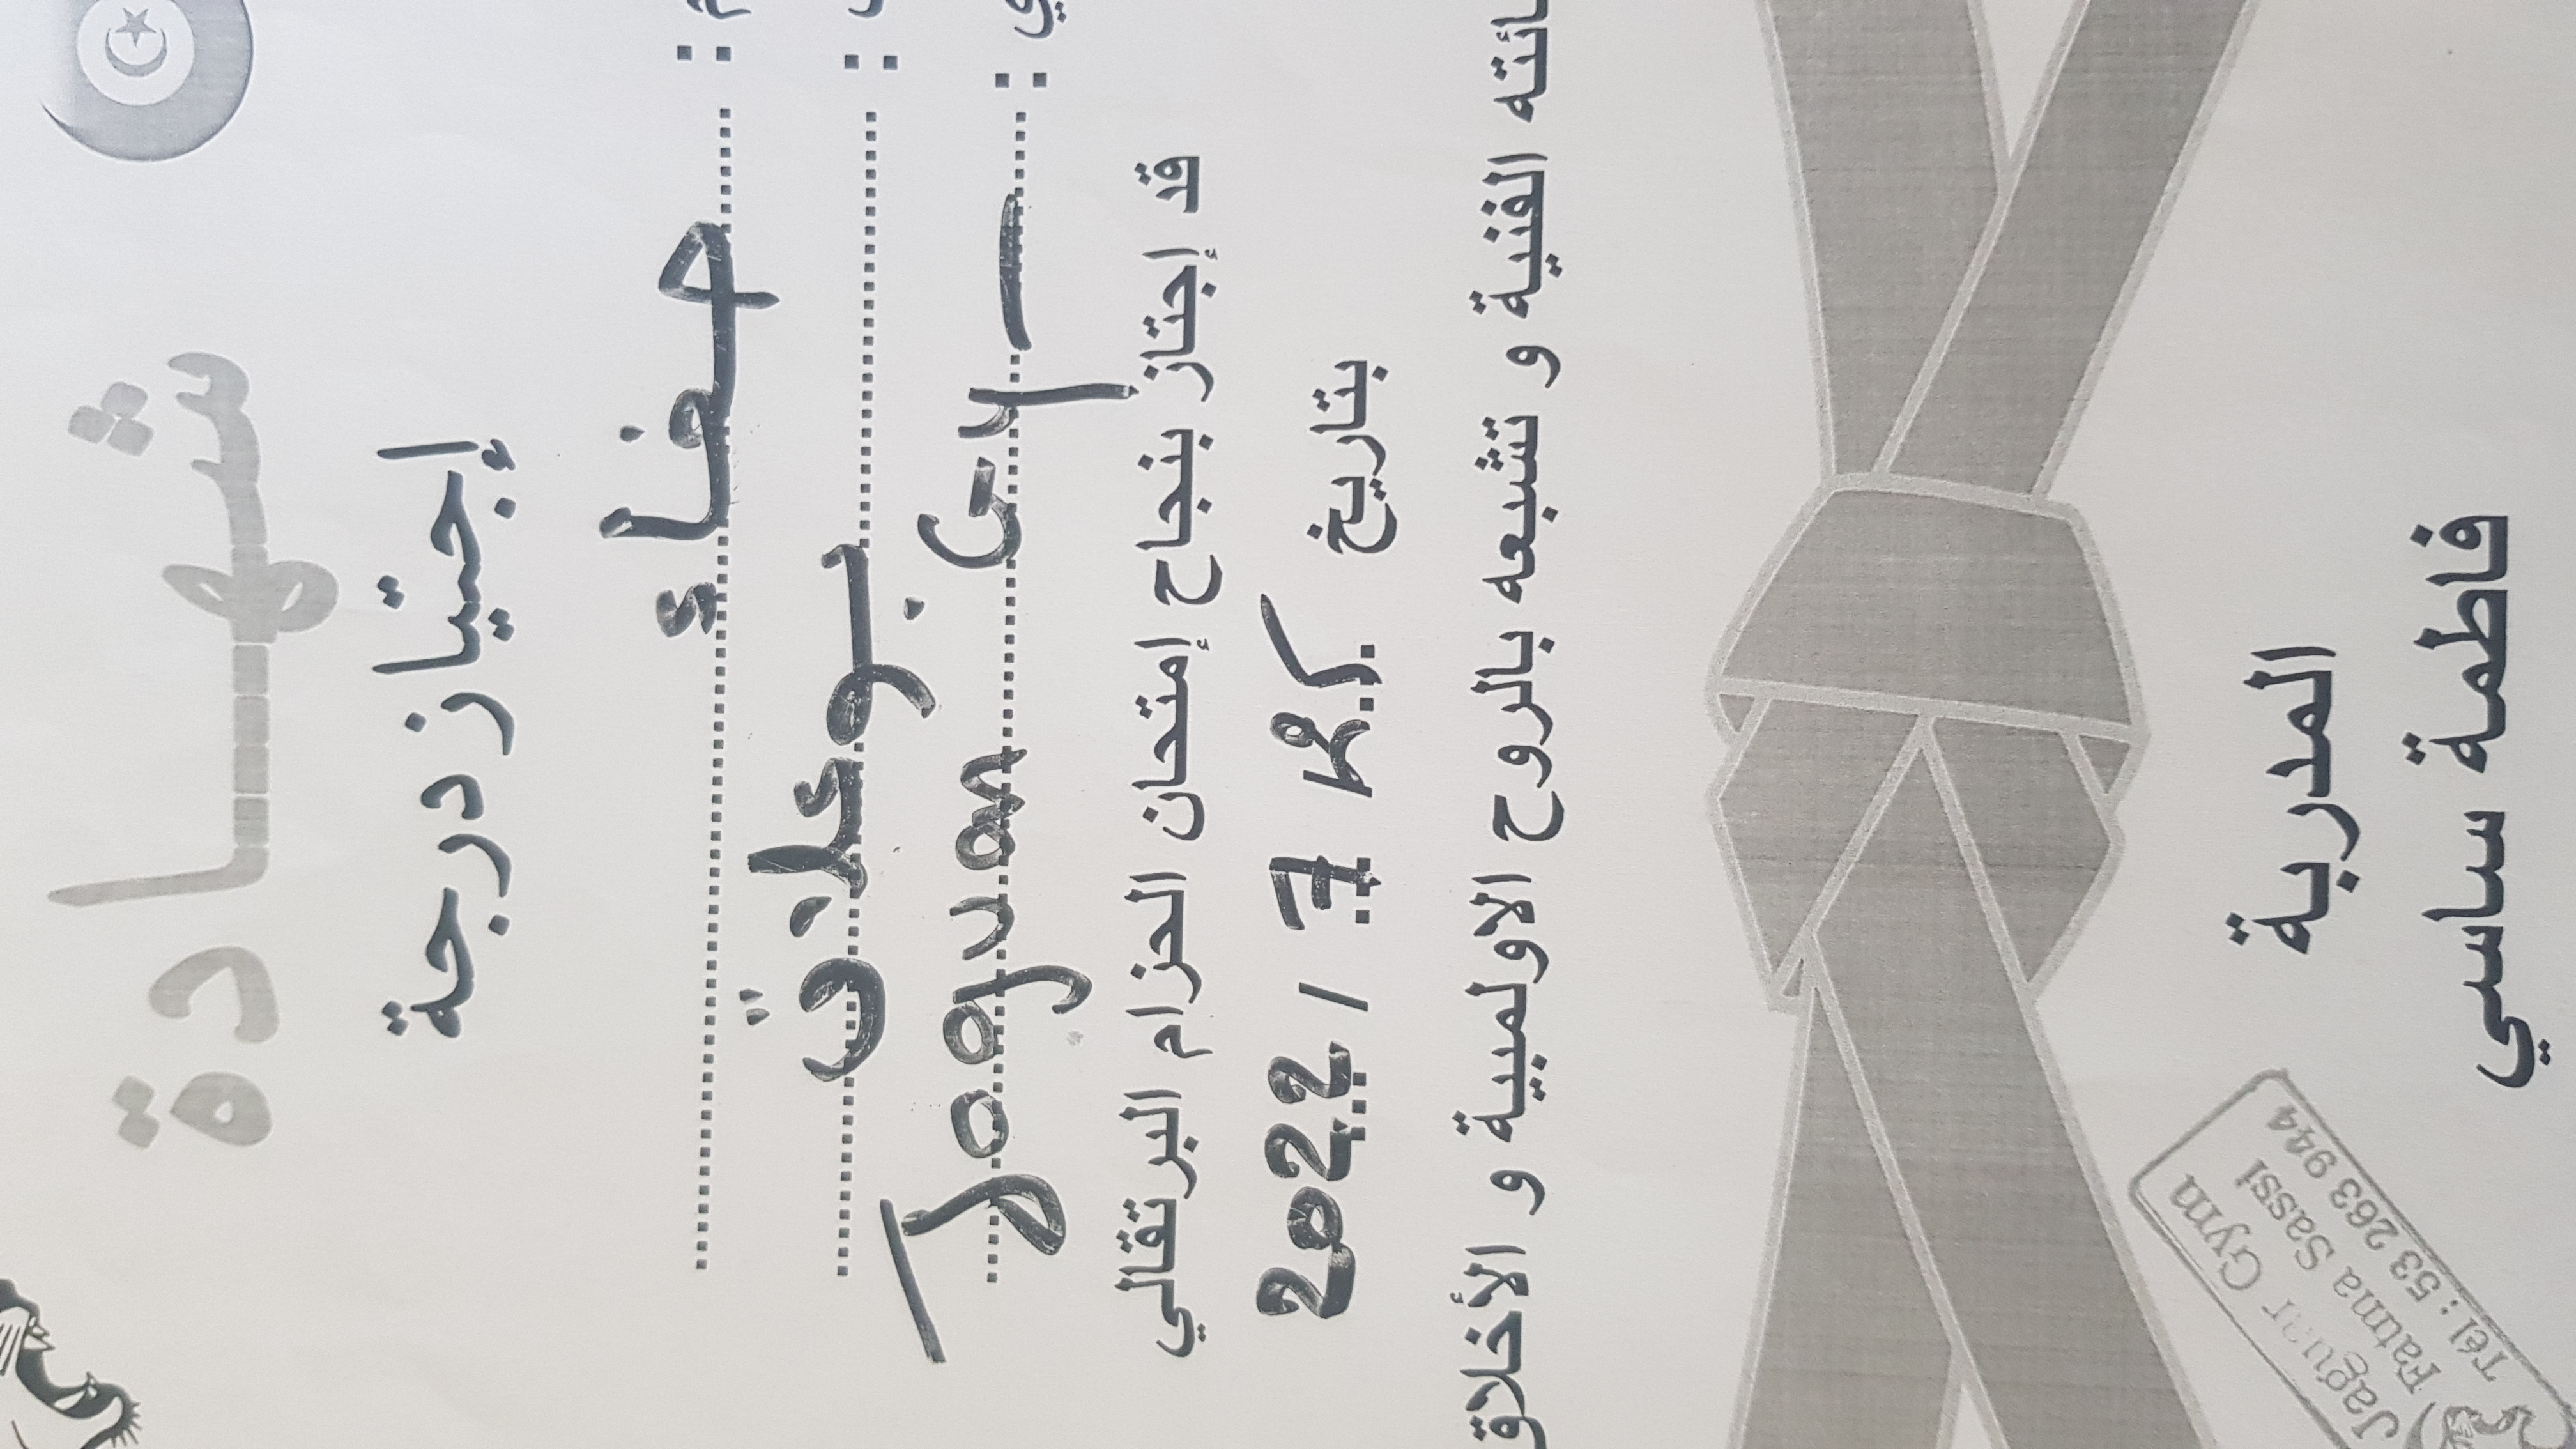 شهادة
إجتياز درجة
صفاء
بوعلاق
نادي Jaguar
قد إجتاز بنجاح إمتحان الحزام البرتقالي
بتاريخ 7 / 2022
الفنية و تشبعه بالروح الاولمبية و الأخلاق
المدربة
فاطمة ساسي
Jaguar Gym
Fatma Sassi
Tél : 53 263 944